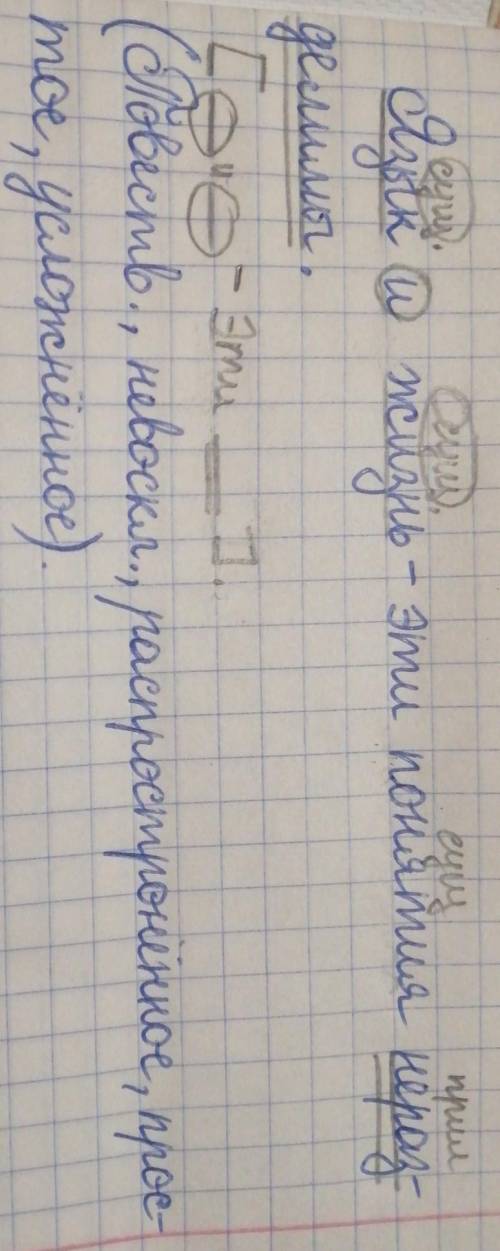 сущ. сущ. сущ прил
Язык и жизнь - эти понятия нераз-
делимы.
[О и О - эти = ].
(Повеств., невоскл., распростронённое, прос-
тое, усложнённое).